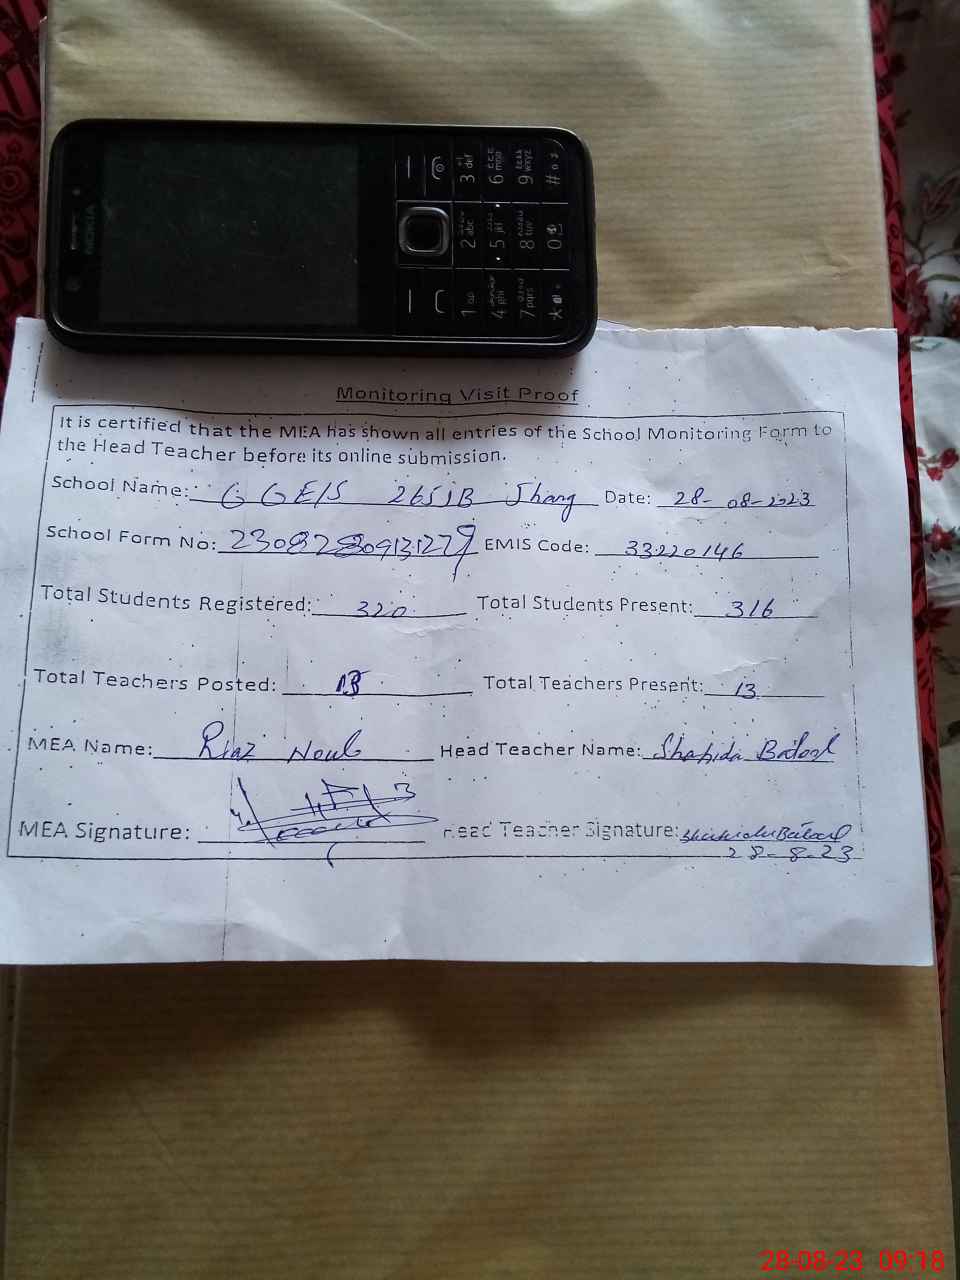 NOKIA
1
2 abc
3 def
4 ghi
5 jkl
6 mno
7 pqrs
8 tuv
9 wxyz
*
0
#
Monitoring Visit Proof
It is certified that the MEA has shown all entries of the School Monitoring Form to
the Head Teacher before its online submission.
School Name: G G E/S 265JB Jhang Date: 28-08-2023
School Form No: EMIS Code: 33220146
Total Students Registered: 320 Total Students Present: 316
Total Teachers Posted: Total Teachers Present: 13
MEA Name: Riaz Head Teacher Name: Shahida Batool
MEA Signature: Head Teacher Signature: Shahida Batool
28-8-23
28-08-23 09:18